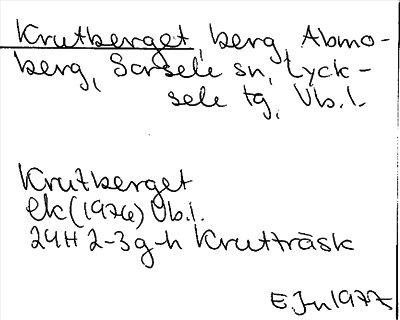 Krutberget, berg, Abmo-
berg, Sorsele sn, Lyck-
sele tg, Vb.l.
Krutberget
Ek (1976) Vb.l.
24H 2-3 g-h Krutträsk
EJn 1977